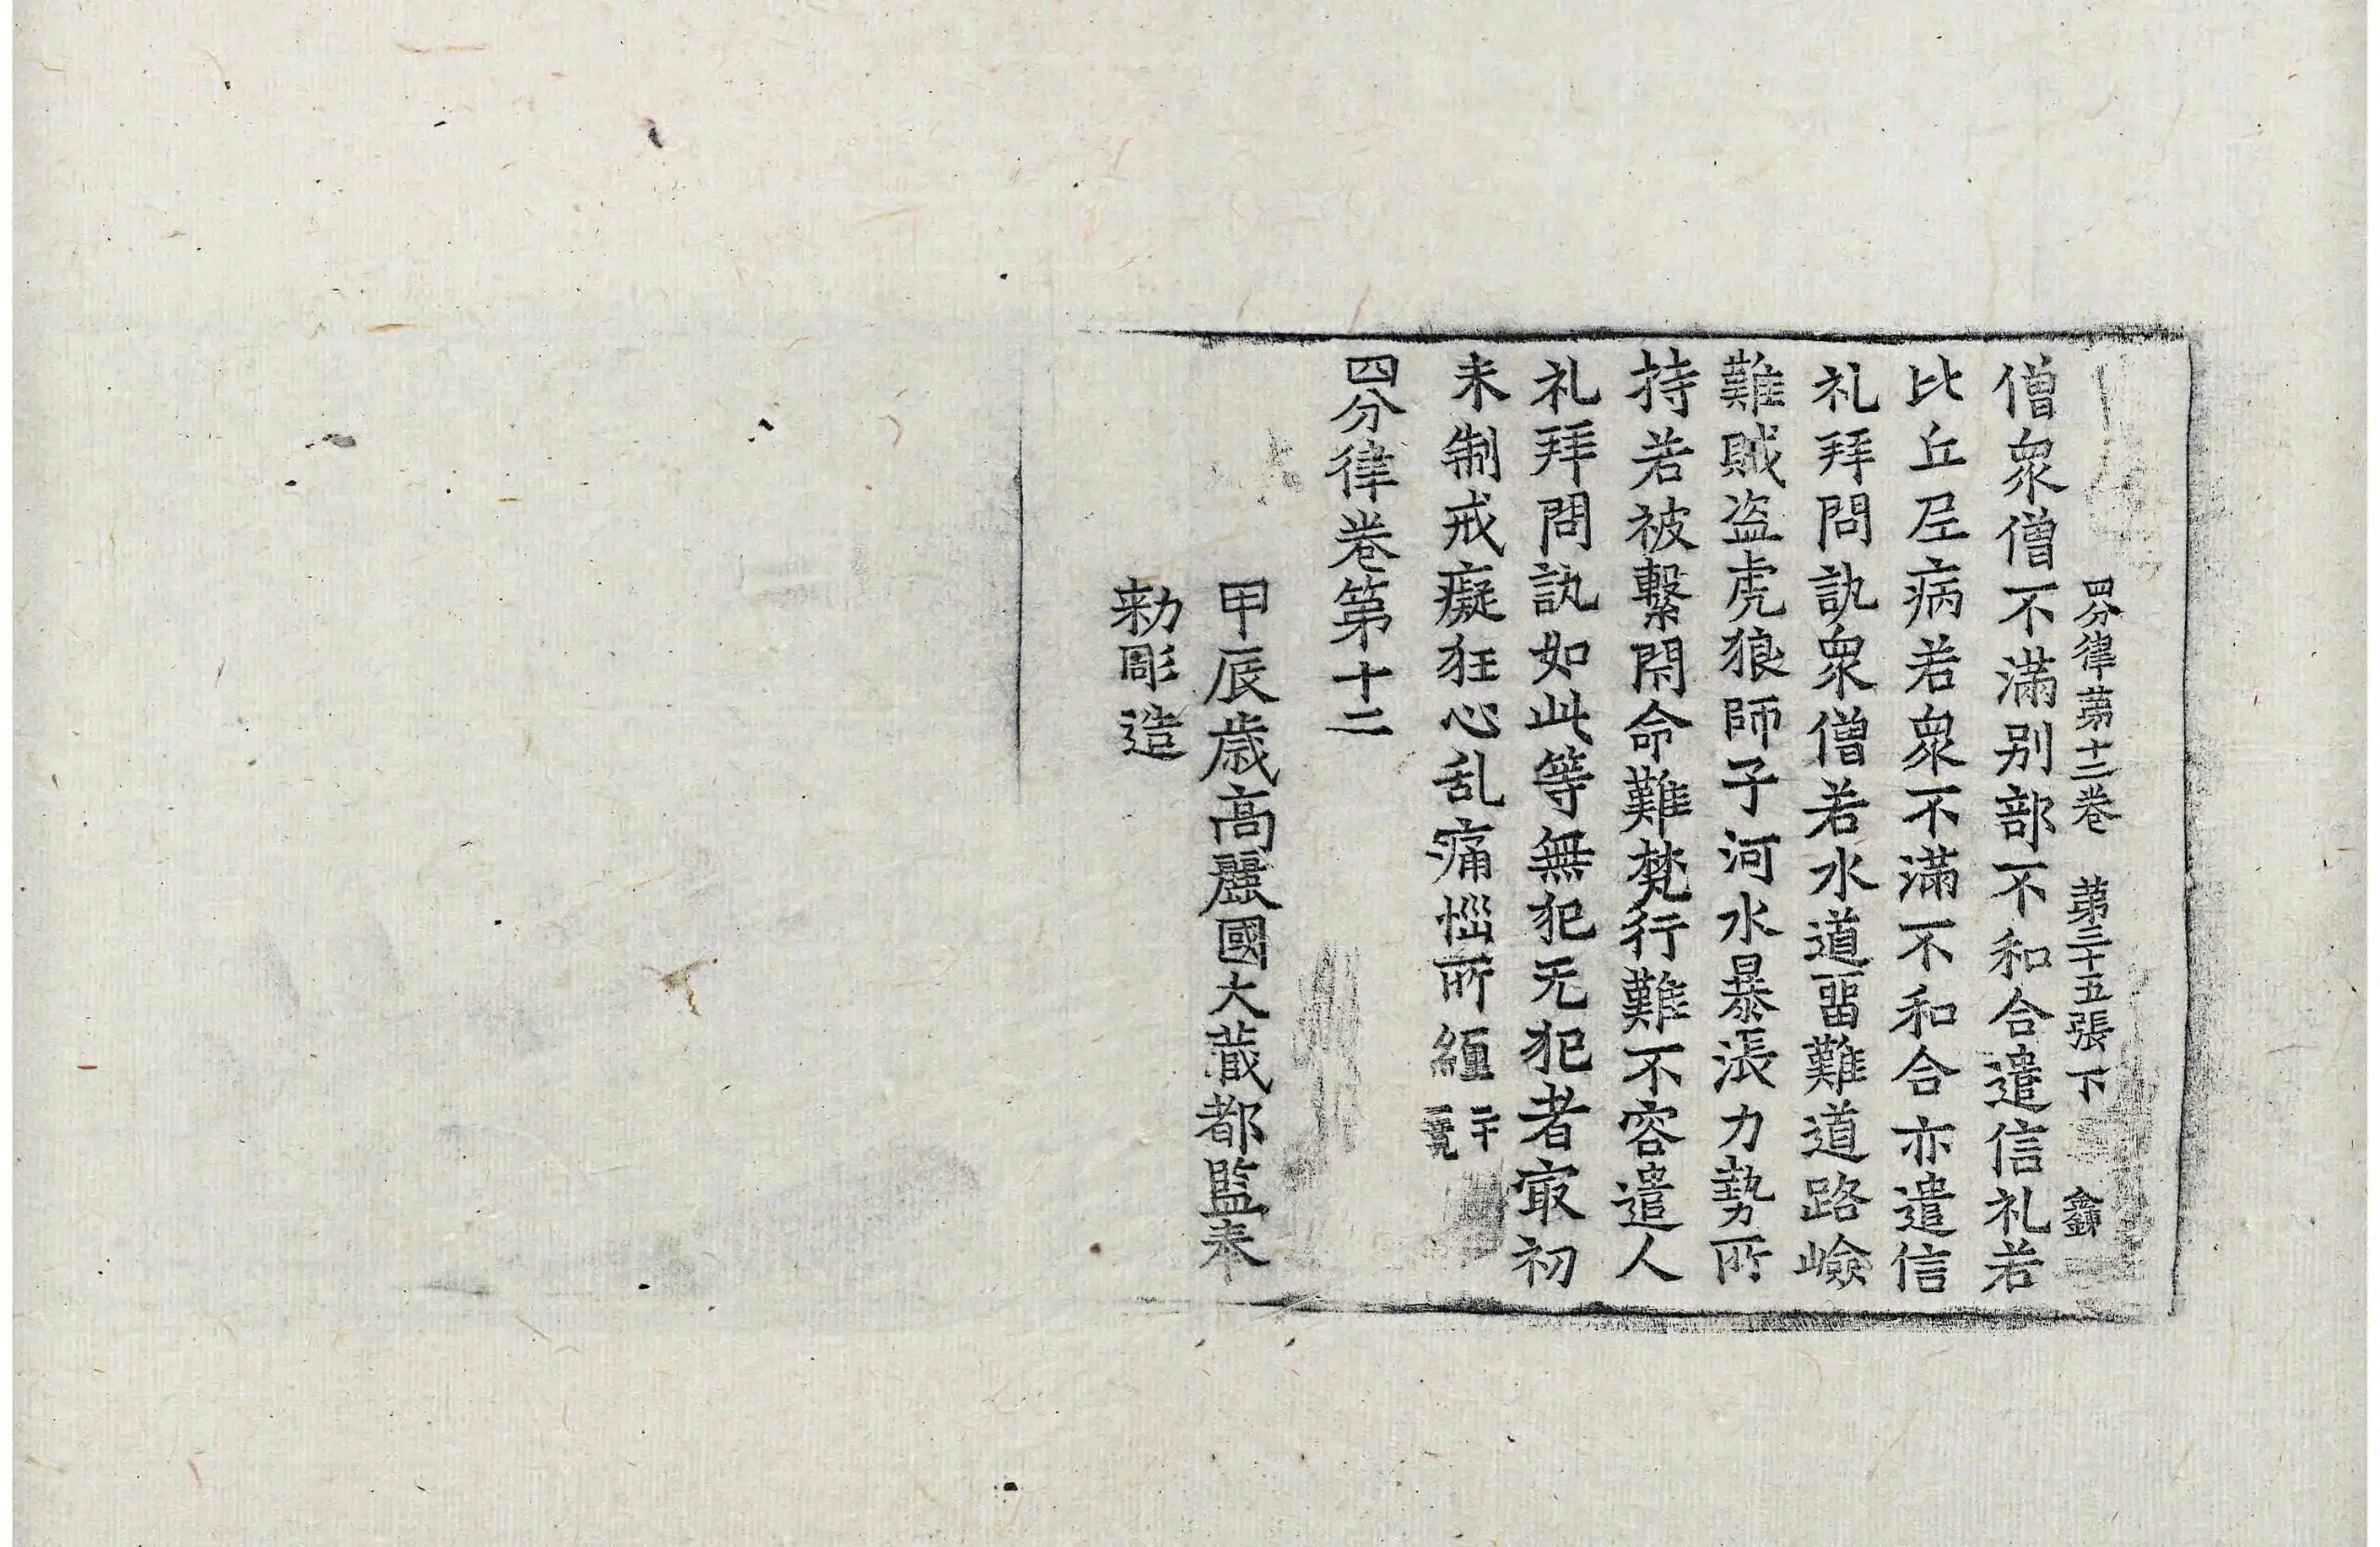 四分律第十二卷　第三十五張　下
僧衆僧不滿別部不和合遣信礼若
比丘尼病若衆不滿不和合亦遣信
礼拜問訊衆僧若水道留難道路嶮
難賊盜虎狼師子河水暴漲力勢所
持若被繫閇命難梵行難不容遣人
礼拜問訊如此等無犯无犯者冣初
未制戒癡狂心乱痛惱所纏二十一竟
四分律卷第十二
甲辰歲高麗國大藏都監奉
勅彫造